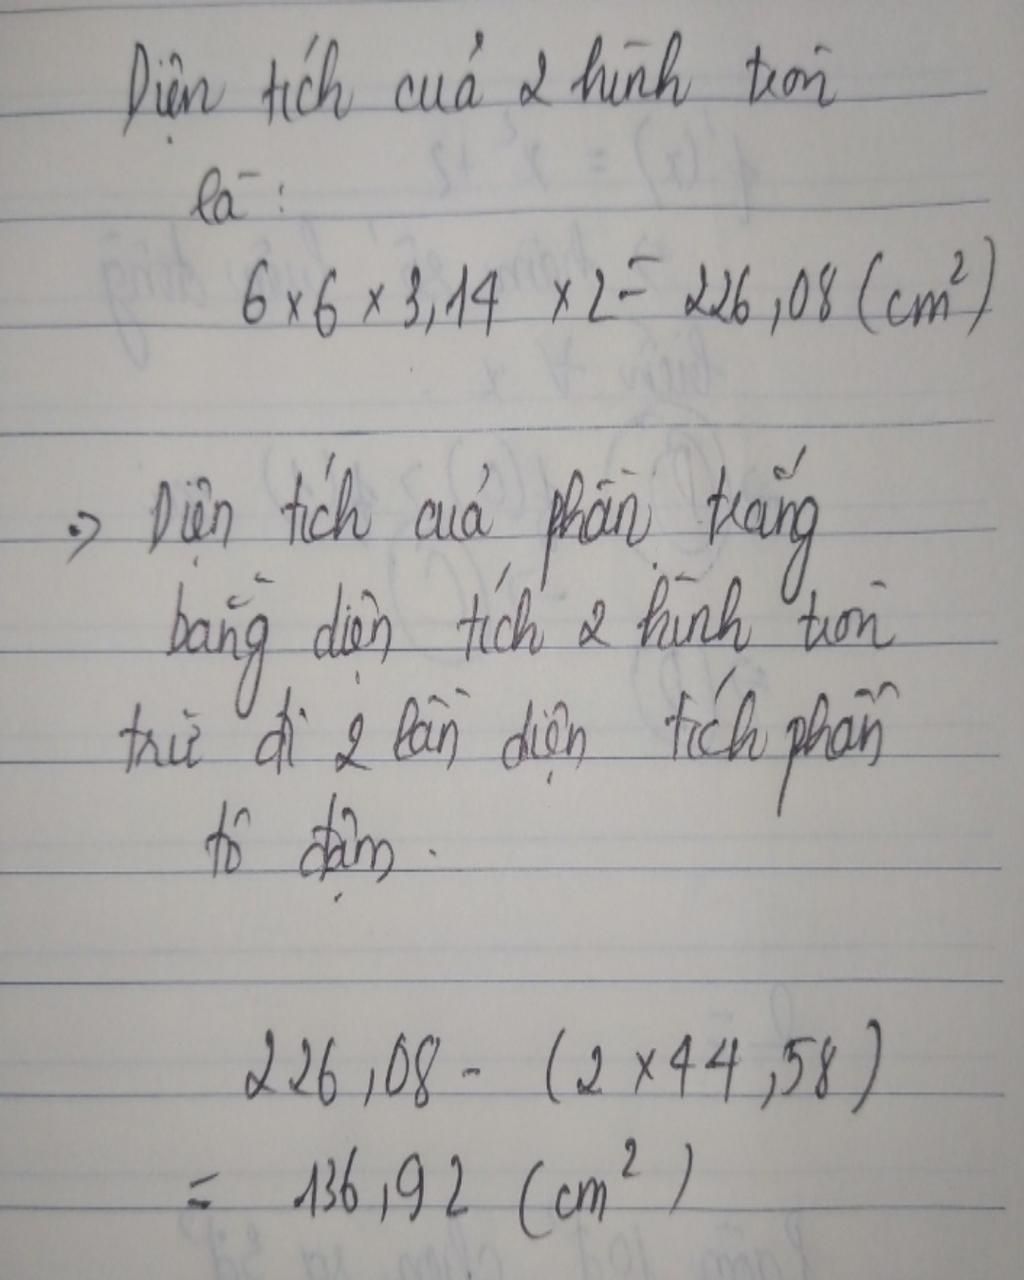 Diện tích của 2 hình tròn
là:
6 x 6 x 3,14 x 2 = 226,08 (cm²)
=> Diện tích của phần trắng
bằng diện tích 2 hình tròn
trừ đi 2 lần diện tích phần
tô đậm.
226,08 - (2 x 44,58)
= 136,92 (cm²)